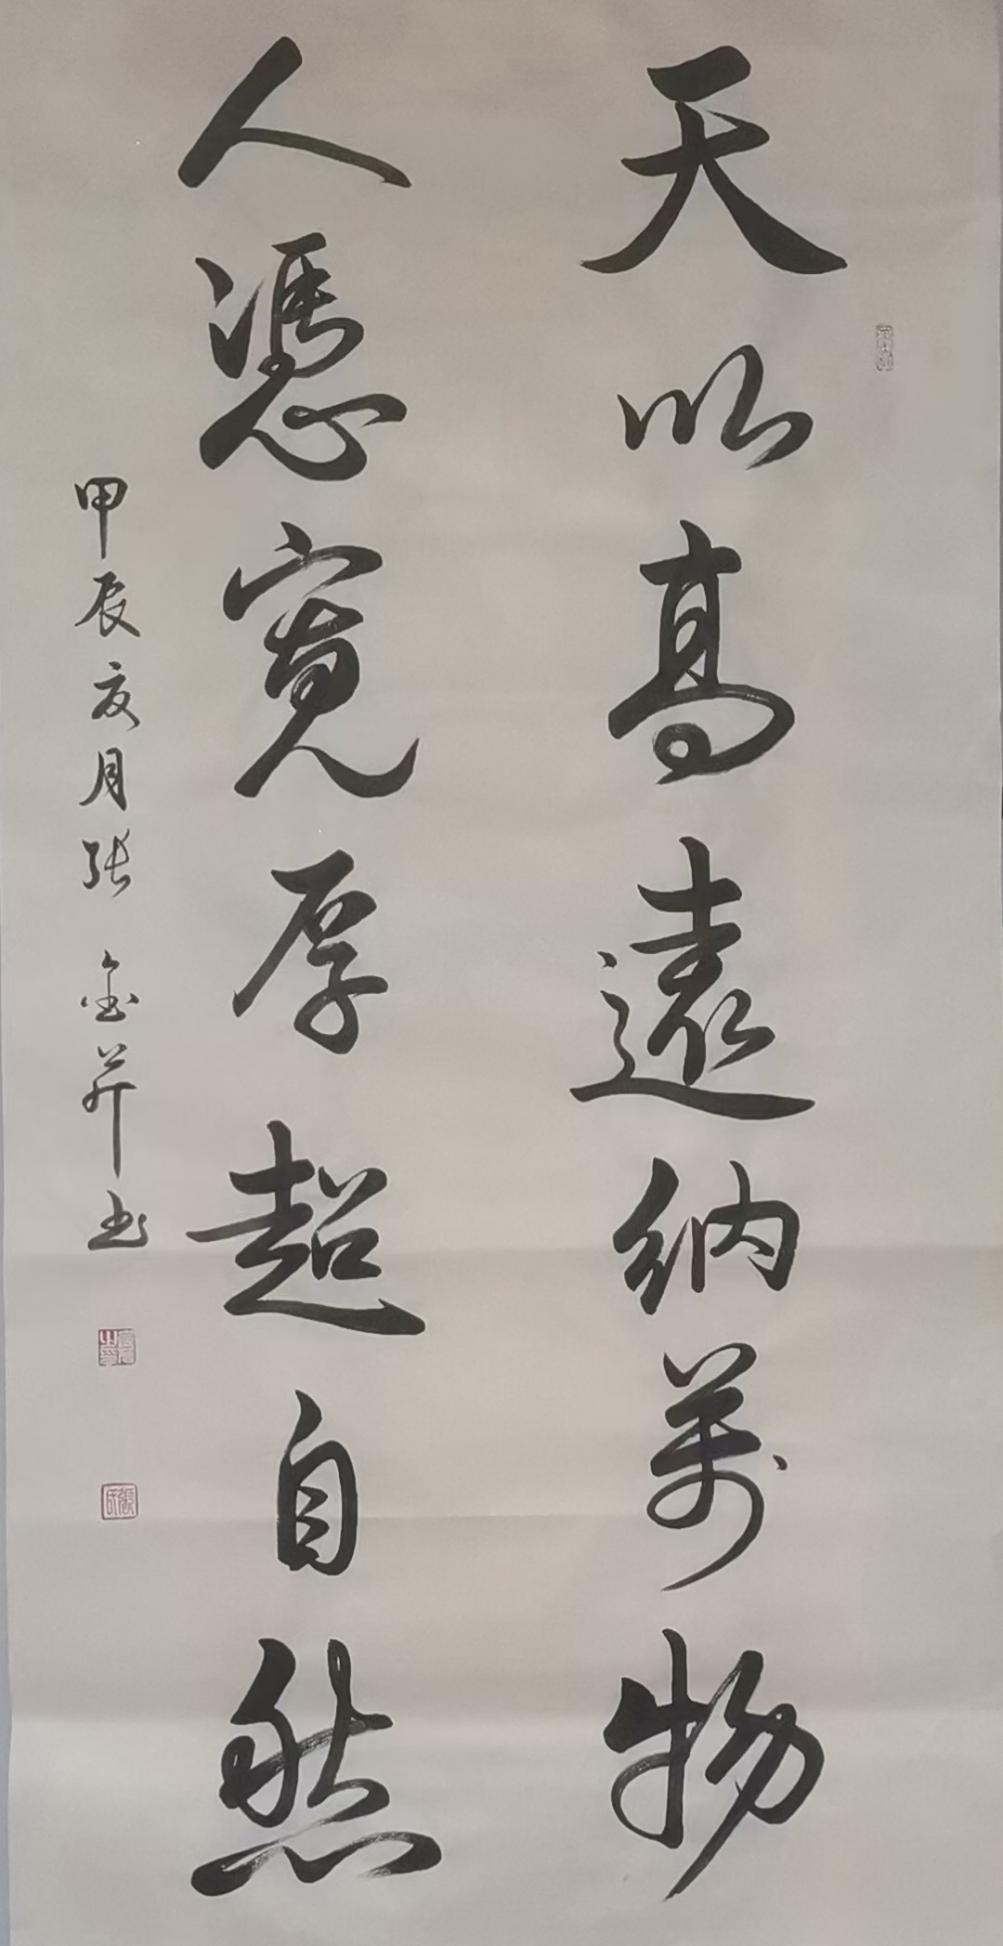 天以高遠納萬物
人憑寬厚超自然
甲辰夏月張金芹书